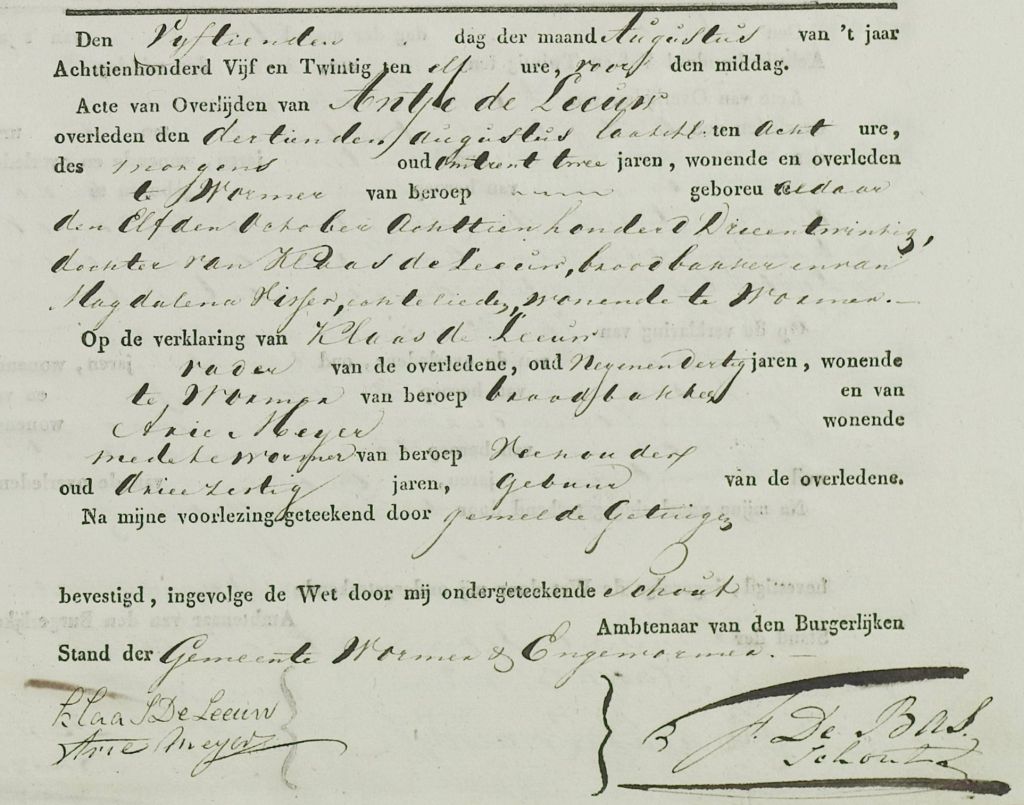 Den Vyftienden dag der maand Augustus van 't jaar
Achttienhonderd Vijf en Twintig ten elf ure, voor den middag.
Acte van Overlijden van Antje de Leeuw
overleden den dertienden augustus laatstl. ten acht ure,
des morgens oud omtrent twee jaren, wonende en overleden
te Wormer van beroep ~~~ geboren aldaar
den Elfden October Achttien honderd Drieentwintig,
dochter van Klaas de Leeuw, broodbakker en van
Magdalena Visser, echtelieden, wonende te Wormer.—
Op de verklaring van Klaas de Leeuw
vader van de overledene, oud Negenendertig jaren, wonende
te Wormer van beroep broodbakker en van
Arie Meyer wonende
mede te Wormer van beroep Veehouder
oud drieezestig jaren, Gebuur van de overledene.
Na mijne voorlezing geteekend door gemelde Getuigen
bevestigd, ingevolge de Wet door mij ondergeteekende Schout
Ambtenaar van den Burgerlijken
Stand der Gemeente Wormer & Engewormer.—
Klaas De Leeuw
Arie Meyer
F. De Bas.
Schout